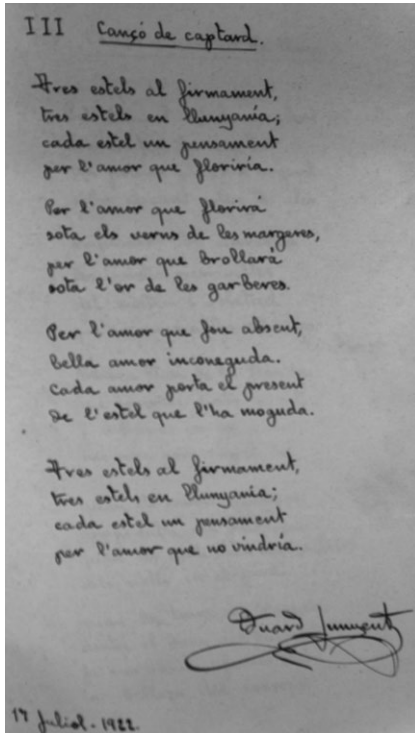 III Cançó de captard.
Tres estels al firmament,
tres estels en llunyania;
cada estel un pensament
per l'amor que floriria.
Per l'amor que florirà
sota els verns de les margeres,
per l'amor que brollarà
sota l'or de les garberes.
Per l'amor que fou absent,
bella amor inconeguda.
Cada amor porta el present
de l'estel que l'ha moguda.
Tres estels al firmament,
tres estels en llunyania;
cada estel un pensament
per l'amor que no vindria.
Duard Junyent
17 Juliol - 1922.